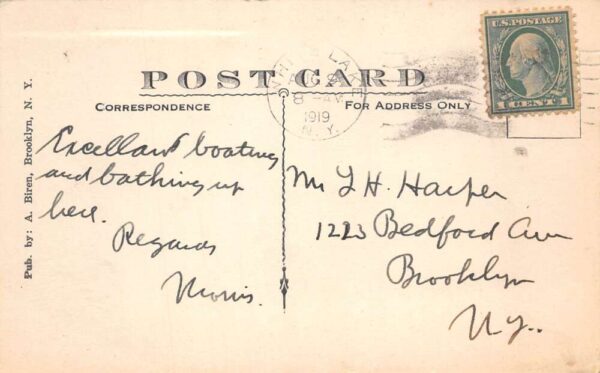 POST CARD
CORRESPONDENCE
FOR ADDRESS ONLY
U.S. POSTAGE
1 CENT 1
LAKE
AUG
8 - AM
1919
N.Y.
Pub. by: A. Biren, Brooklyn, N. Y.
Excellant boating
and bathing up
here.
Regards
Morris.
Mr L H. Harper
1223 Bedford Ave
Brooklyn
N.Y..